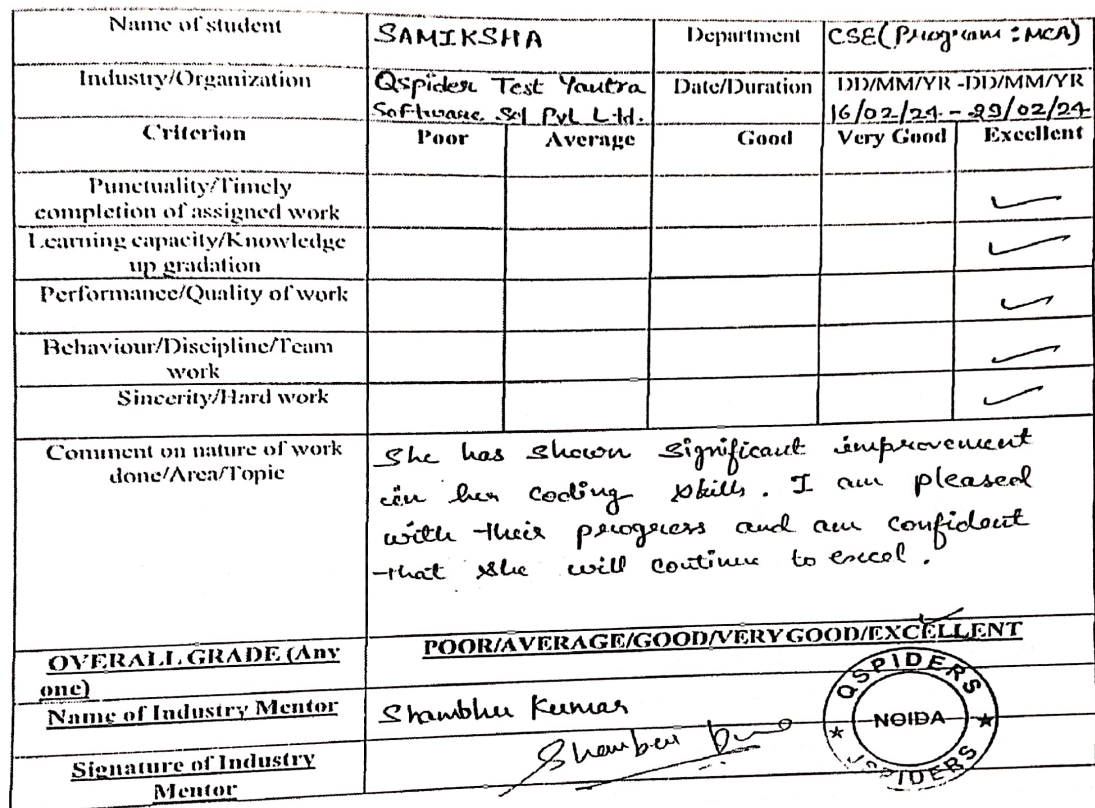 Name of student SAMIKSHA Department CSE (Program : MCA)
Industry/Organization Qspider Test Yantra Date/Duration DD/MM/YR -DD/MM/YR
Software Sol Pvt Ltd. 16/02/24 - 29/02/24
Criterion Poor Average Good Very Good Excellent
Punctuality/Timely
completion of assigned work
Learning capacity/Knowledge
up gradation
Performance/Quality of work
Behaviour/Discipline/Team
work
Sincerity/Hard work
Comment on nature of work
done/Area/Topic
She has shown significant improvement
in her coding skills. I am pleased
with their progress and am confident
that she will continue to excel.
OVERALL GRADE (Any
one)
POOR/AVERAGE/GOOD/VERY GOOD/EXCELLENT
Name of Industry Mentor Shambhu Kumar
Signature of Industry
Mentor
QSPIDERS
NOIDA
JSPIDERS